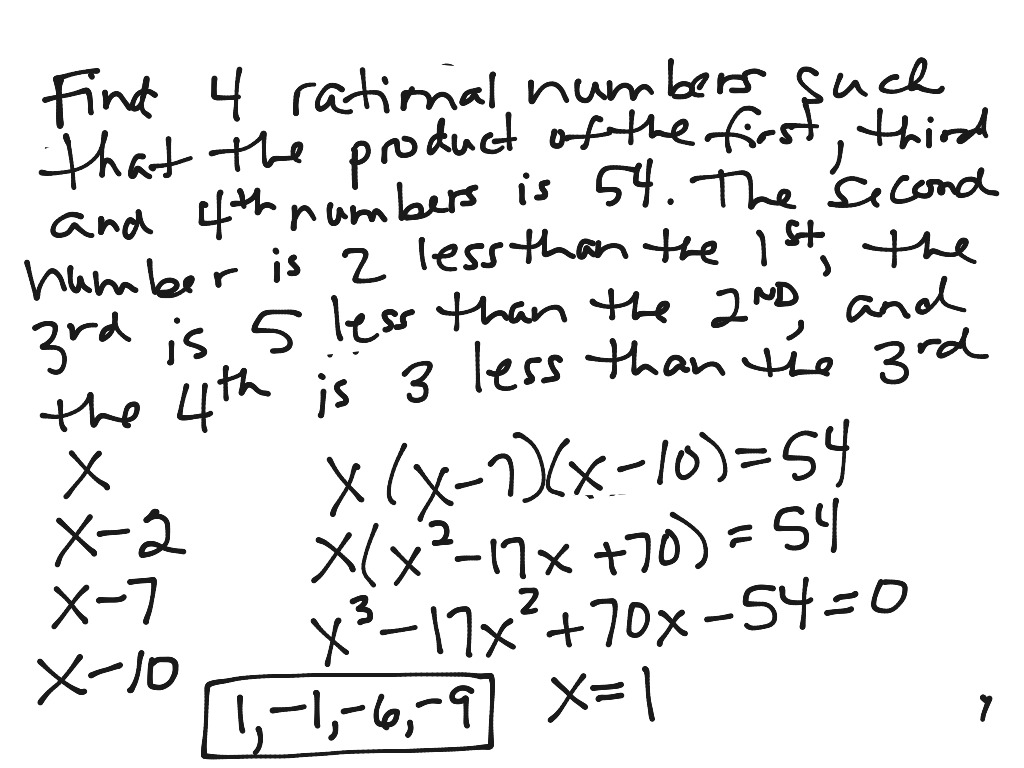 Find 4 rational numbers such
that the product of the first, third
and 4th numbers is 54. The second
number is 2 less than the 1st, the
3rd is 5 less than the 2ND, and
the 4th is 3 less than the 3rd
x
x-2
x-7
x-10
x(x-7)(x-10)=54
x(x²-17x+70)=54
x³-17x²+70x-54=0
x=1
1,-1,-6,-9